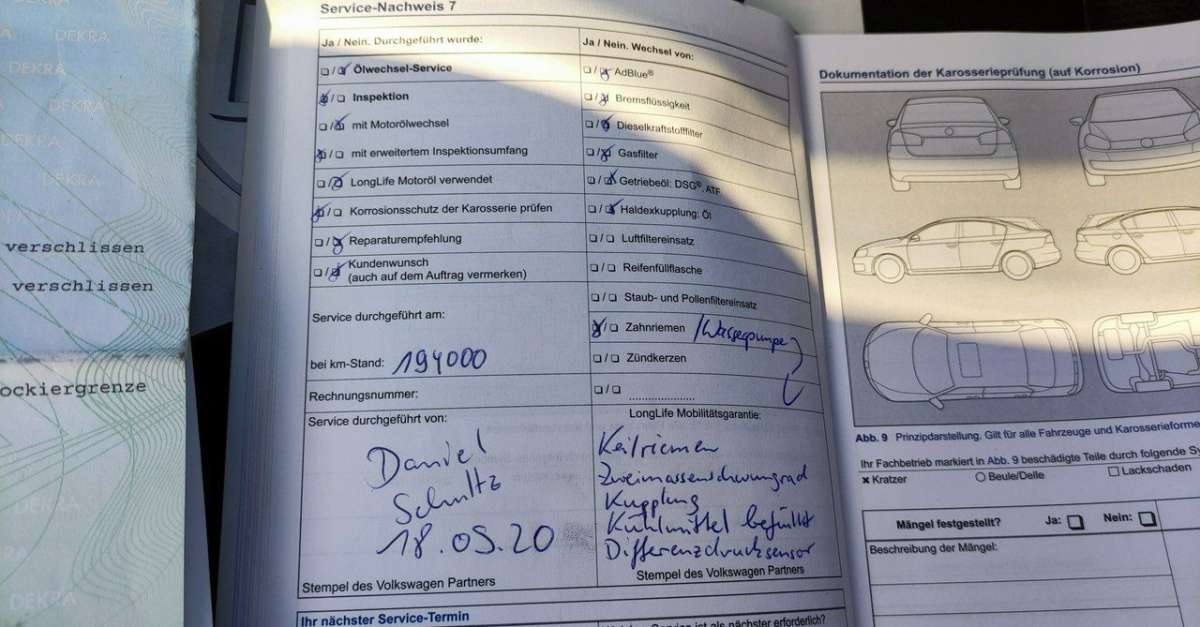 DEKRA
DEKRA
DEKRA
DEKRA
DEKRA
verschlissen
verschlissen
ockiergrenze
DEKRA
DEKRA
Service-Nachweis 7
Ja / Nein. Durchgeführt wurde:
❑/❑ Ölwechsel-Service
❑/❑ Inspektion
❑/❑ mit Motorölwechsel
❑/❑ mit erweitertem Inspektionsumfang
❑/❑ LongLife Motoröl verwendet
❑/❑ Korrosionsschutz der Karosserie prüfen
❑/❑ Reparaturempfehlung
❑/❑ Kundenwunsch
(auch auf dem Auftrag vermerken)
Service durchgeführt am:
bei km-Stand: 194000
Rechnungsnummer:
Service durchgeführt von:
Daniel
Schultz
18.05.20
Stempel des Volkswagen Partners
Ihr nächster Service-Termin
Ja / Nein. Wechsel von:
❑/❑ AdBlue®
❑/❑ Bremsflüssigkeit
❑/❑ Dieselkraftstofffilter
❑/❑ Gasfilter
❑/❑ Getriebeöl: DSG®, ATF
❑/❑ Haldexkupplung: Öl
❑/❑ Luftfiltereinsatz
❑/❑ Reifenfüllflasche
❑/❑ Staub- und Pollenfiltereinsatz
❑/❑ Zahnriemen /Wasserpumpe
❑/❑ Zündkerzen
❑/❑
LongLife Mobilitätsgarantie:
Keilriemen
Zweimassenschwungrad
Kupplung
Kühlmittel befüllt
Differenzdrucksensor
Stempel des Volkswagen Partners
Service ist als nächster erforderlich?
Dokumentation der Karosserieprüfung (auf Korrosion)
Abb. 9 Prinzipdarstellung. Gilt für alle Fahrzeuge und Karosserieforme
Ihr Fachbetrieb markiert in Abb. 9 beschädigte Teile durch folgende Sy
✖ Kratzer ○ Beule/Delle ☐ Lackschaden
Mängel festgestellt? Ja: ❑ Nein: ❑
Beschreibung der Mängel: